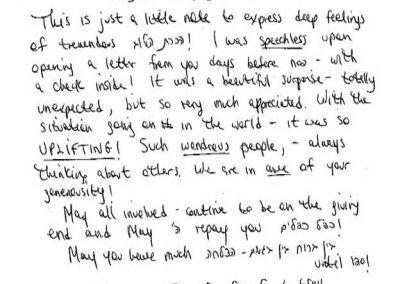 This is just a little note to express deep feelings
of tremendous הכרת הטוב! I was speechless upon
opening a letter from you days before now - with
a check inside! It was a beautiful surprise - totally
unexpected, but so very much appreciated. With the
situation going on in the world - it was so
UPLIFTING! Such wondrous people, - always
thinking about others. We are in awe of your
generousity!
May all involved - continue to be on the giving
end and May ה' repay you כפל כפלים!
May you have much
until 120!